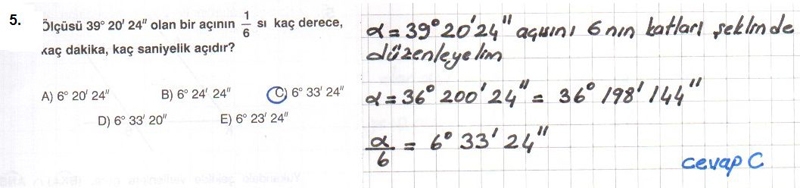 5. Ölçüsü 39° 20' 24" olan bir açının 1/6 sı kaç derece,
kaç dakika, kaç saniyelik açıdır?
A) 6° 20' 24" B) 6° 24' 24" C) 6° 33' 24"
D) 6° 33' 20" E) 6° 23' 24"
α = 39° 20' 24" açısını 6 nın katları şeklinde
düzenleyelim
α = 36° 200' 24" = 36° 198' 144"
α/6 = 6° 33' 24"
cevap C